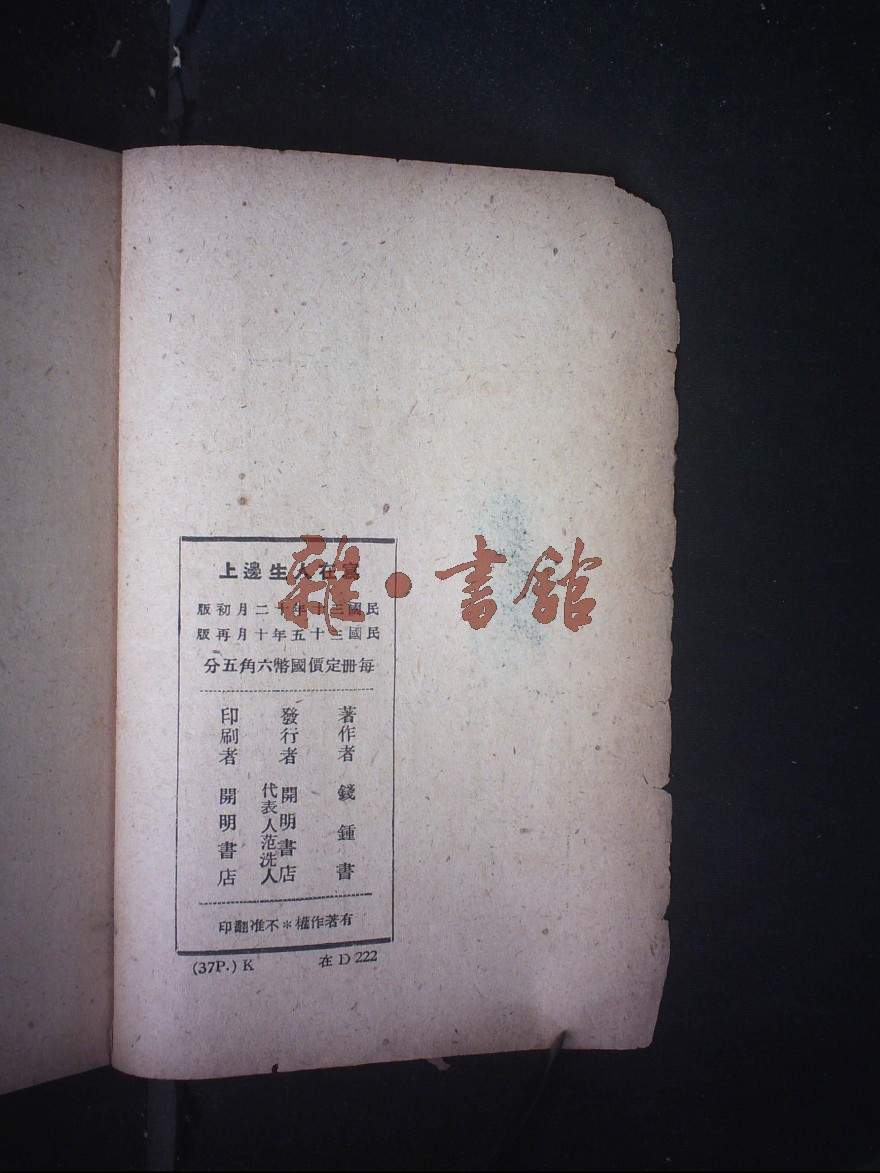 寫在人生邊上
民國三十年十二月初版
民國三十五年十月再版
每冊定價國幣六角五分
著作者 錢鍾書
發行者 開明書店
代表人范洗人
印刷者 開明書店
有著作權＊不准翻印
(37P.) K 在 D 222
雜·書館